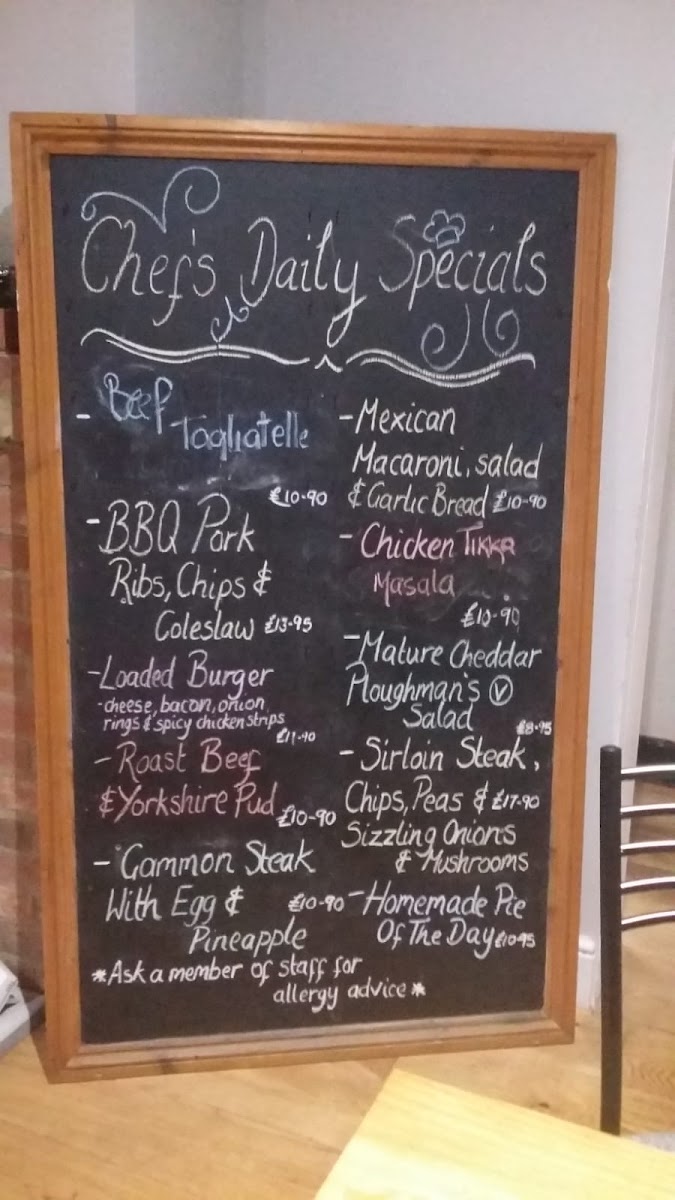 Chef's Daily Specials
- Beef
Tagliatelle
£10-90
- BBQ Pork
Ribs, Chips &
Coleslaw £13-95
- Loaded Burger
- cheese, bacon, onion
rings & spicy chicken strips
£11-90
- Roast Beef
& Yorkshire Pud £10-90
- Gammon Steak
With Egg & £10-90
Pineapple
- Mexican
Macaroni, salad
& Garlic Bread £10-90
- Chicken Tikka
Masala
£10-90
- Mature Cheddar
Ploughman's V
Salad £8-95
- Sirloin Steak,
Chips, Peas & £17-90
Sizzling Onions
& Mushrooms
- Homemade Pie
Of The Day £10-95
*Ask a member of staff for
allergy advice*